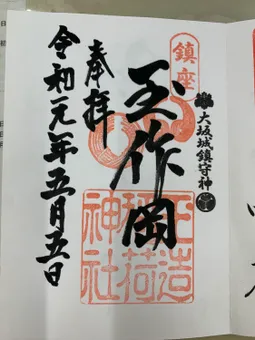 鎮座
大坂城鎮守神
玉作岡
玉造
稲荷
神社
奉拝
令和元年五月五日